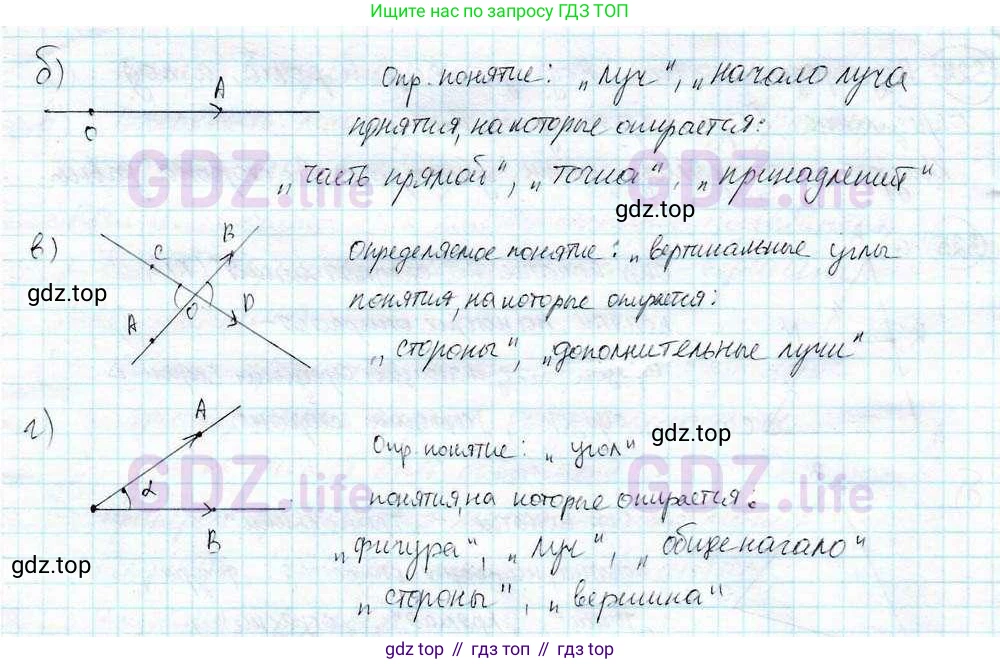 Ищите нас по запросу ГДЗ ТОП
б)
A
O
Опр. понятие: „луч“, „начало луча
понятия, на которые опирается:
„часть прямой“, „точка“, „принадлежит“
GDZ.life
GDZ.life
gdz.top
в)
C
B
A
O
D
Определяемое понятие: „вертикальные углы
понятия, на которые опирается:
„стороны“, „дополнительные лучи“
gdz.top
г)
A
α
B
Опр. понятие: „угол“
gdz.top
понятия, на которые опирается:
GDZ.life
GDZ.life
„фигура“, „луч“, „общее начало“
„стороны“, „вершина“
gdz.top
gdz.top // гдз.топ // gdz.top